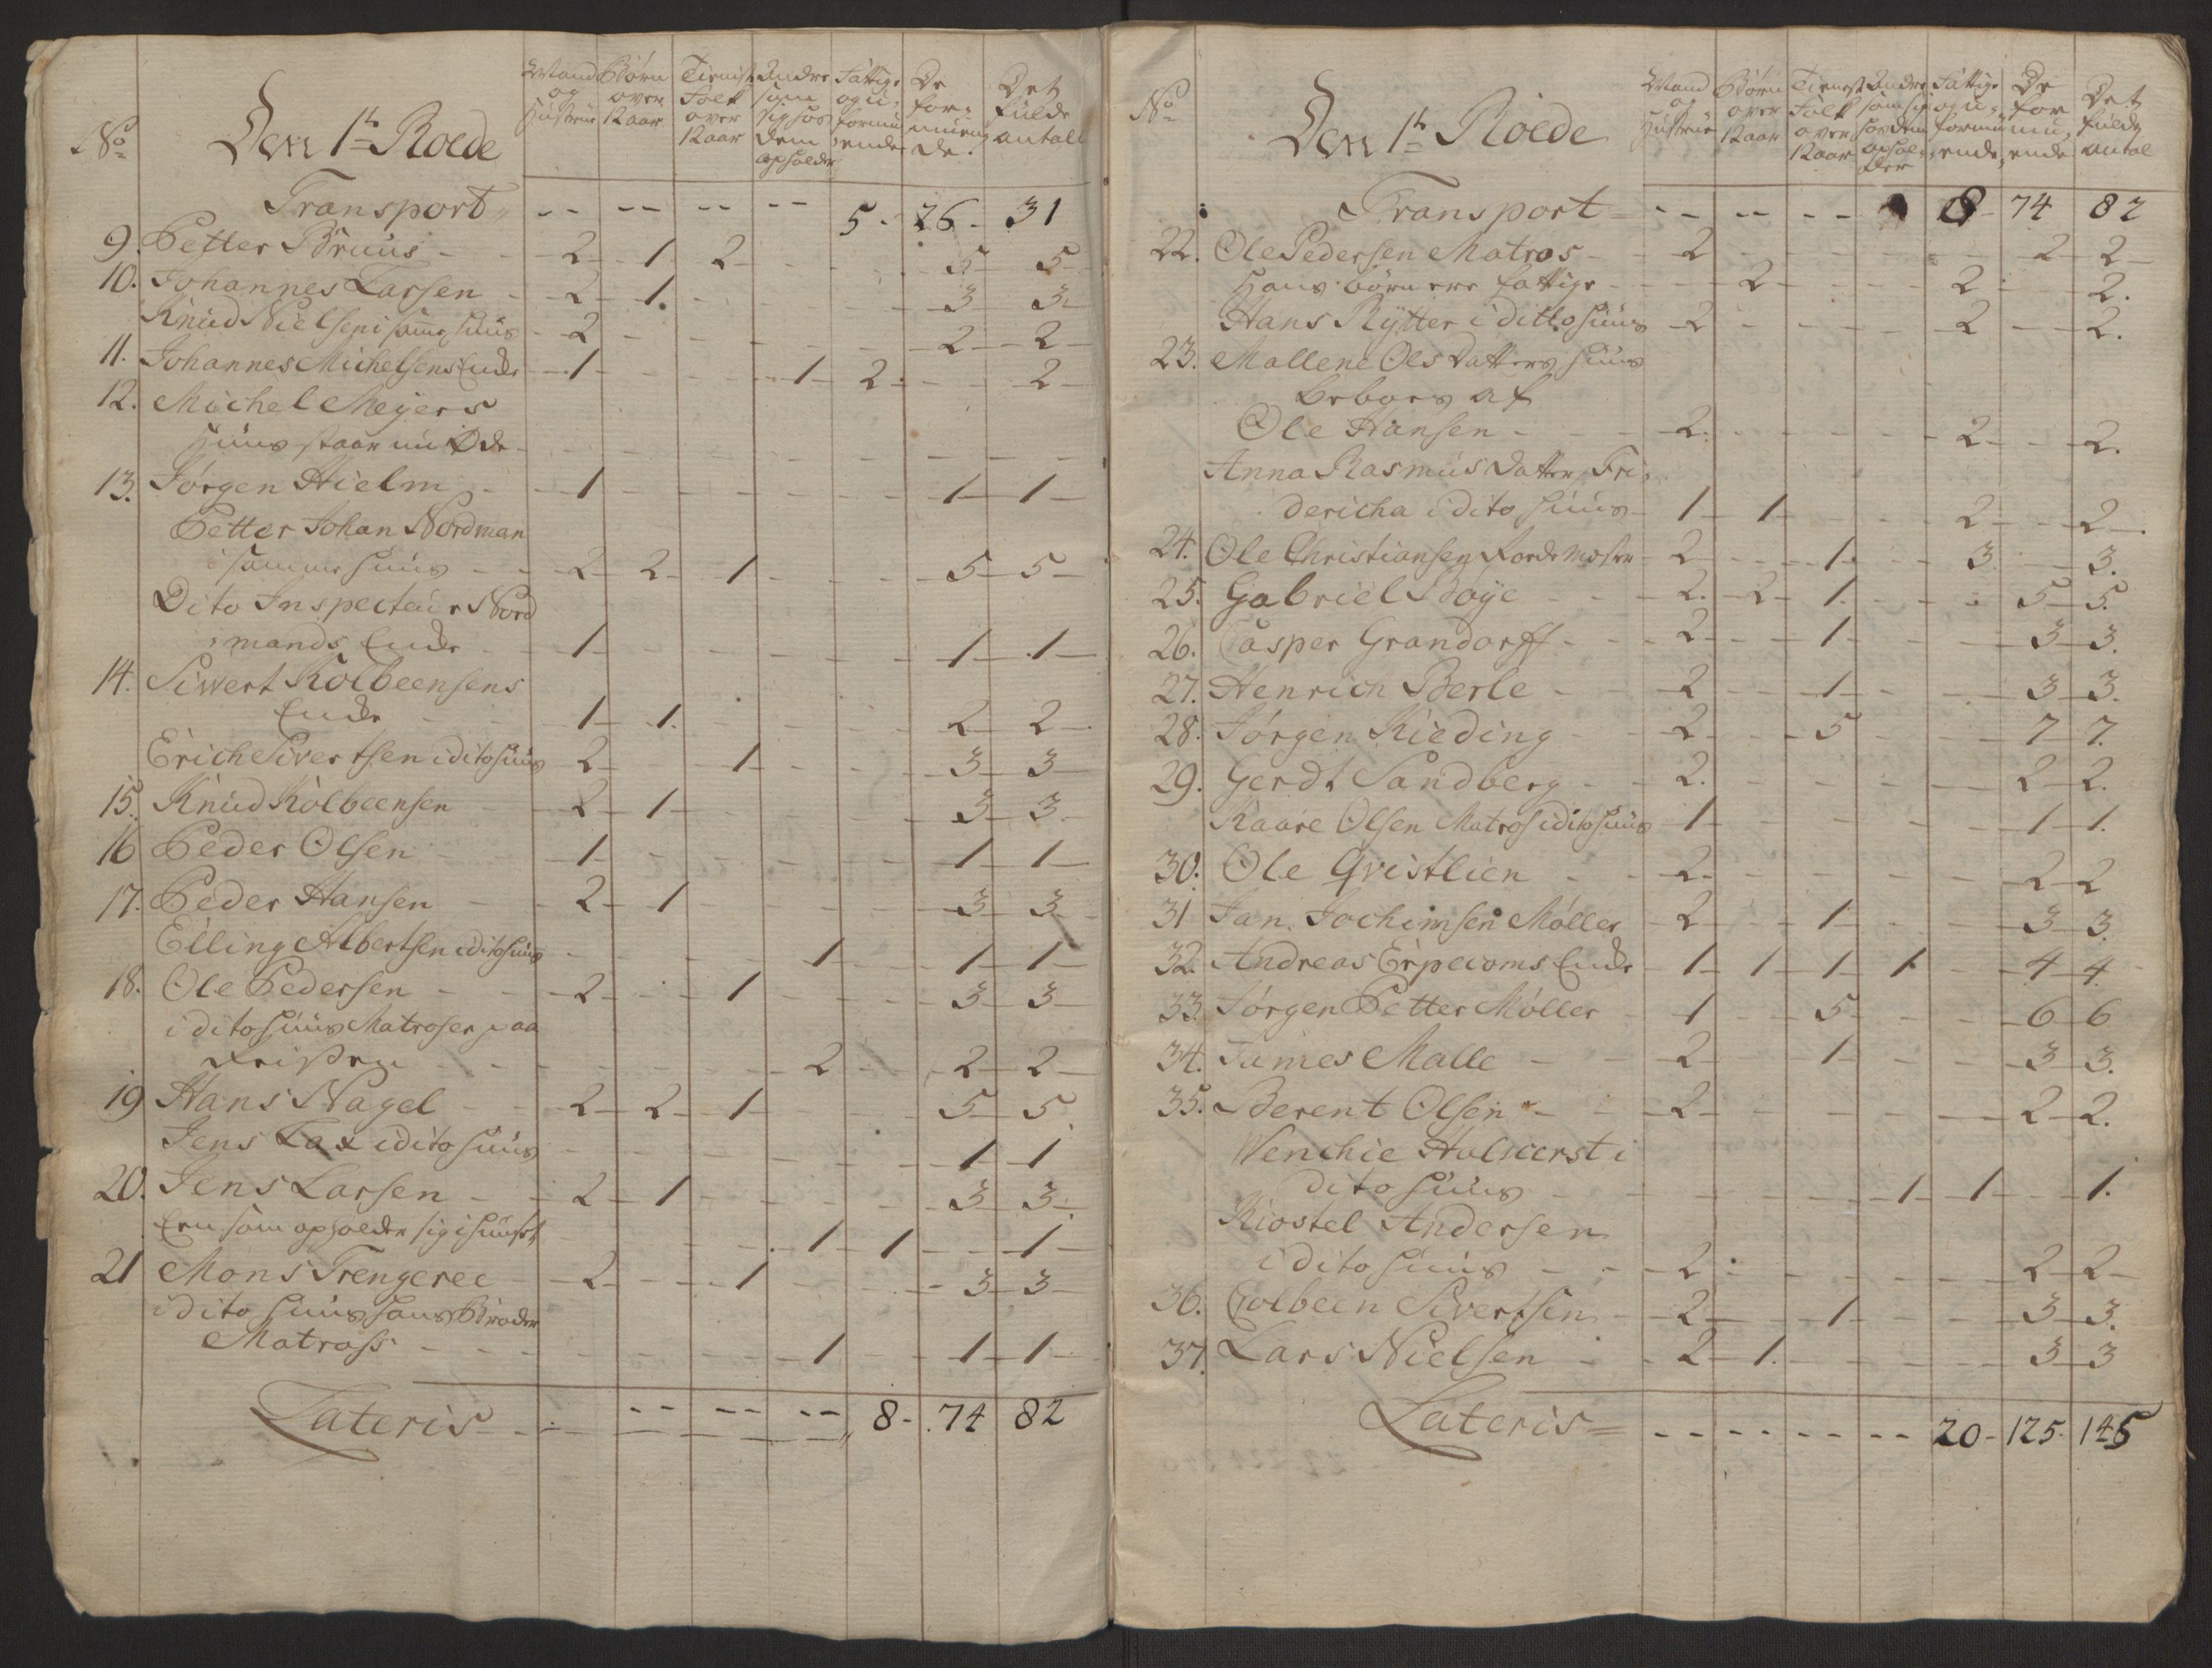 No Den 1te Roede Mand og Hustrue Børn over 12 Aar Tieniste Folk over 12 Aar Andre som sig hos dem opholder Fattige og uformuende De formuende Det fulde antall
Transport -- -- -- -- 5 - 26 - 31
9. Petter Bruus - 2 - 1 - 2 - - - 5 - 5
10. Johannes Larsen - 2 - 1. - - - 3 - 3 -
Knud Nielsen i samme huus - 2 - - - - 2 - 2 -
11. Johannes Michelsens Enke - 1 - - - 1 - 2 - - - 2 -
12. Michel Meyers
Huus staar nu Øde - - - - - - -
13. Jørgen Hielm - 1 - - - - - 1 - 1 -
Petter Johan Nordman
i samme huus - - 2 - 2 - 1 - - - 5 - 5 -
Dito Inspecteur Nord
mands Enke - 1 - - - - - 1 - 1 -
14. Siwert Kolbeensens
Enke - 1 - 1 - - - - 2 - 2 -
Erich Sivertsen i dito huus 2 - - 1 - - - 3 - 3 -
15. Knud Kolbeensen - 2 - 1 - - - - 3 - 3 -
16 Peder Olsen - - 1 - - - - - 1 - 1 -
17. Peder Hansen - - 2 - 1 - - - - 3 - 3 -
Elling Albertsen i dito huus - - - - 1 - - 1 - 1 -
18. Ole Pedersen - - 2 - - 1 - - - 3 - 3 -
i dito huus Matroser paa
- - - - - 2 - - 2 - 2 -
19 Hans Nagel - - 2 - 2 - 1 - - - 5 - 5
Jens Lax i dito huus - - - - - - 1 - 1
20. Jens Larsen - - 2 - 1 - - - - 3 - 3 -
Een som opholder sig i huuset - - - - 1 - 1 - - - 1 -
21 Mons Trengeree - 2 - - - 1 - - - 3 - 3 -
i dito huus hans Broder
Matross - - - - - - - 1 - - 1 - 1 -
Lateris - - - -- -- -- 8 - 74 82
No Den 1te Roede Mand og Hustrue Børn over 12 Aar Tienest Folk over 12 Aar Andre som sig hos dem opholder Fattige og uformuende De formuende Det fulde antal
Transport = -- -- -- 8 - 74 82
22. Ole Pedersen Matros - - 2 - - - - - 2 - 2 -
Hans børn ere fattige - - - 2 - - - 2 - - 2.
Hans Rytter i ditto huus - 2 - - - - 2 - - 2.
23. Mallene Ols datters huus
beboes af
Ole Hansen - - - 2. - - - - 2 - - 2.
Anna Rasmus datter, Fri,
dericha i dito huus - 1 - 1 - - - 2 - - 2 -
24. Ole Christiansen Rodemester - 2 - - 1 - - 3 - - 3.
25. Gabriel Bøye - - 2. - 2 - 1. - - - 5 - 5.
26. Casper Grandorff - - 2 - - 1 - - - 3 - 3.
27. Henrich Berle - - 2 - - 1 - - - 3 - 3.
28. Jørgen Kieding - - 2 - - 5 - - - 7 - 7.
29. Gerdt Sandberg - - 2. - - - - - 2 - 2.
Kaare Olsen Matros i dito huus - 1 - - - - - 1 - 1.
30. Ole Qvistlien - - 2. - - - - - 2 - 2
31 Jan Jochimsen Møller - 2 - - 1 - - - 3 - 3.
32. Andreas Erpecoms Enke - 1 - 1 - 1 - 1 - - 4 - 4.
33. Jørgen Petter Møller - 1 - - 5 - - - 6 - 6
34. James Malle - - 2 - 1 - - - 3 - 3.
35. Berent Olsen - - 2 - - - - - 2 - 2.
Wenchie Halvierst i
dito huus - - - - - - 1 - 1 - - 1.
Kiostel Andersen
i dito huus - - - 2 - - - - - 2 - 2 -
36. Colbeen Sivertsen - 2 - - 1 - - - 3 - 3.
37. Lars Nielsen - - 2 - 1. - - - - 3 - 3
Lateris = - - - - - - - - 20 - 125 - 145